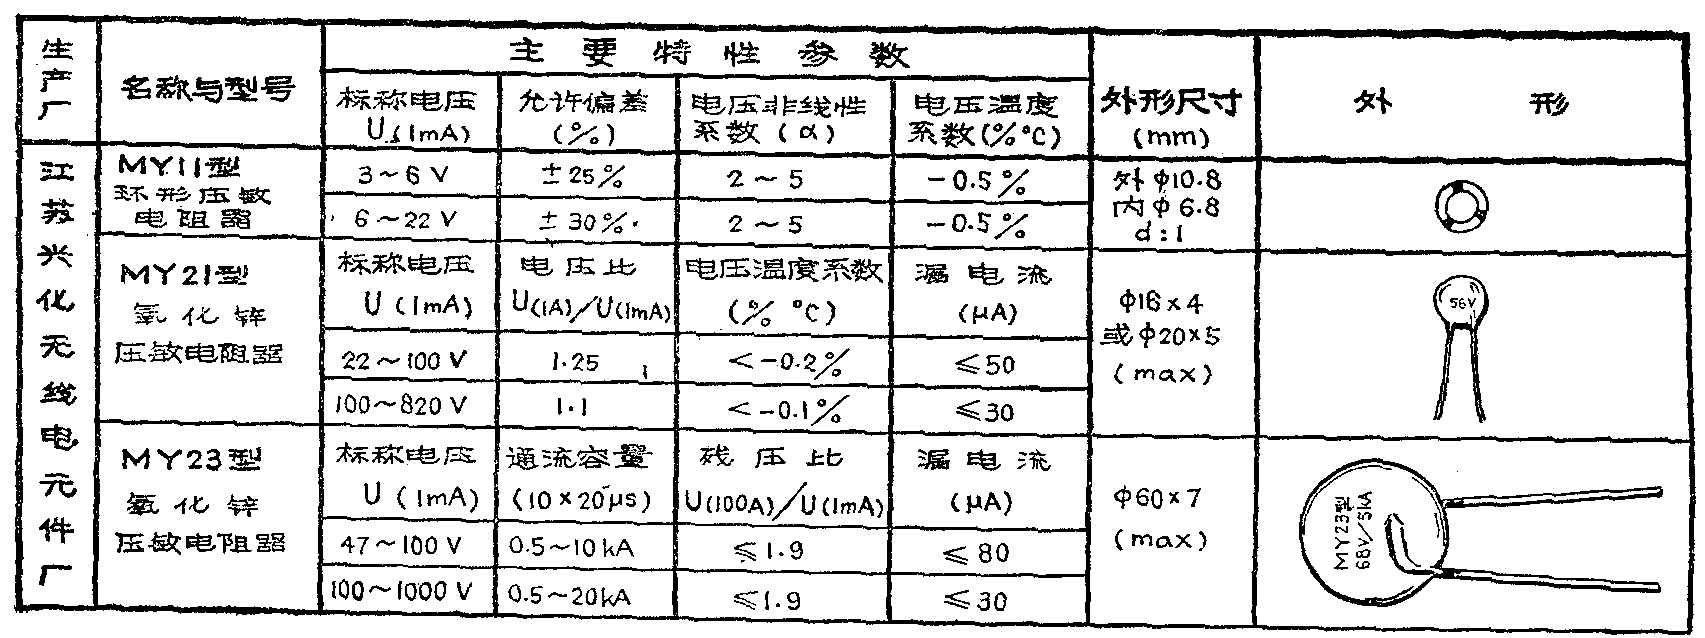 生产厂
名称与型号
主要特性参数
标称电压
U(1mA)
允许偏差
(%)
电压非线性
系数(α)
电压温度
系数(%℃)
外形尺寸
(mm)
外形
江苏兴化无线电元件厂
MY11型
环形压敏
电阻器
3~6V
±25%
2~5
-0.5%
6~22V
±30%
2~5
-0.5%
外φ10.8
内φ6.8
d:1
MY21型
氧化锌
压敏电阻器
标称电压
U(1mA)
电压比
U(1A)/U(1mA)
电压温度系数
(%℃)
漏电流
(μA)
22~100V
1.25
<-0.2%
≤50
100~820V
1.1
<-0.1%
≤30
φ16×4
或φ20×5
(max)
56V
MY23型
氧化锌
压敏电阻器
标称电压
U(1mA)
通流容量
(10×20μs)
残压比
U(100A)/U(1mA)
漏电流
(μA)
47~100V
0.5~10kA
≤1.9
≤80
100~1000V
0.5~20kA
≤1.9
≤30
φ60×7
(max)
MY23型
68V/5kA